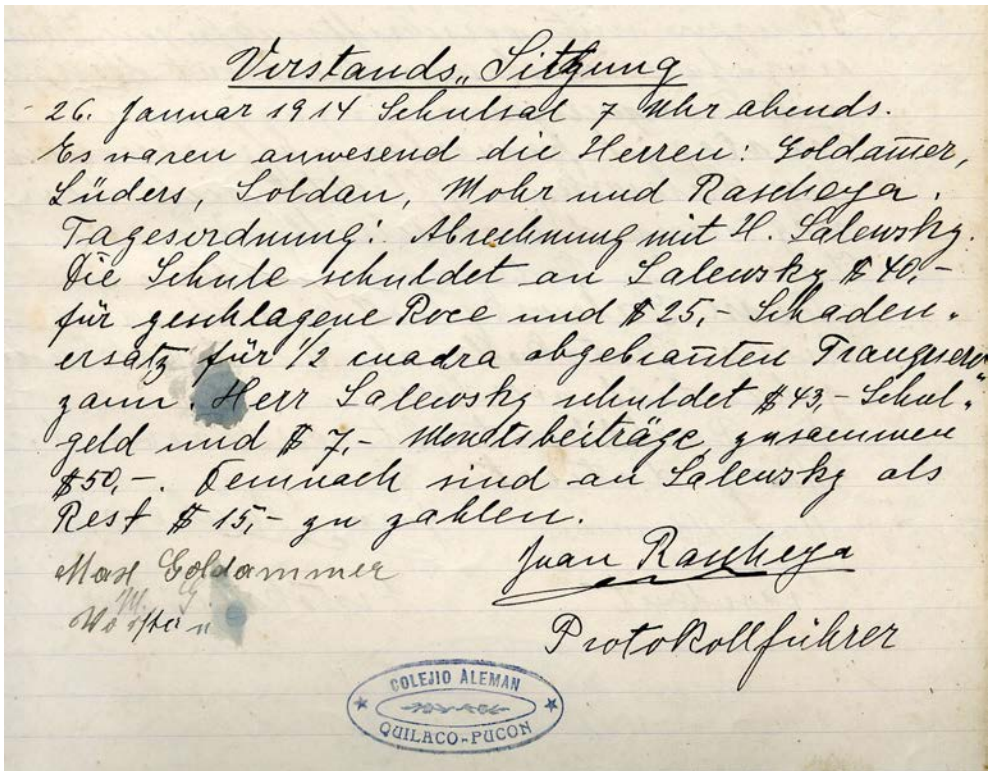 Vorstands„ Sitzung
26. Januar 1914 Schulsal 7 Uhr abends.
Es waren anwesend die Herren: Goldam̄er,
Lüders, Soldan, Mohr und Rascheya.
Tagesordnung: Abrechnung mit H. Salewsky.
Die Schule schuldet an Salewsky $ 40,-
für geschlagene Roce und $ 25,- Schaden„
ersatz für 1/2 cuadra abgebran̄ten
zaun. Herr Salewsky schuldet $ 43,- Schul„
geld und $ 7,- Monatsbeiträge, zusammen
$ 50,-. Demnach sind an Salewsky als
Rest $ 15,- zu zahlen.
Max Goldammer
Juan Rascheya
Protokollführer
COLEJIO ALEMAN
QUILACO-PUCON